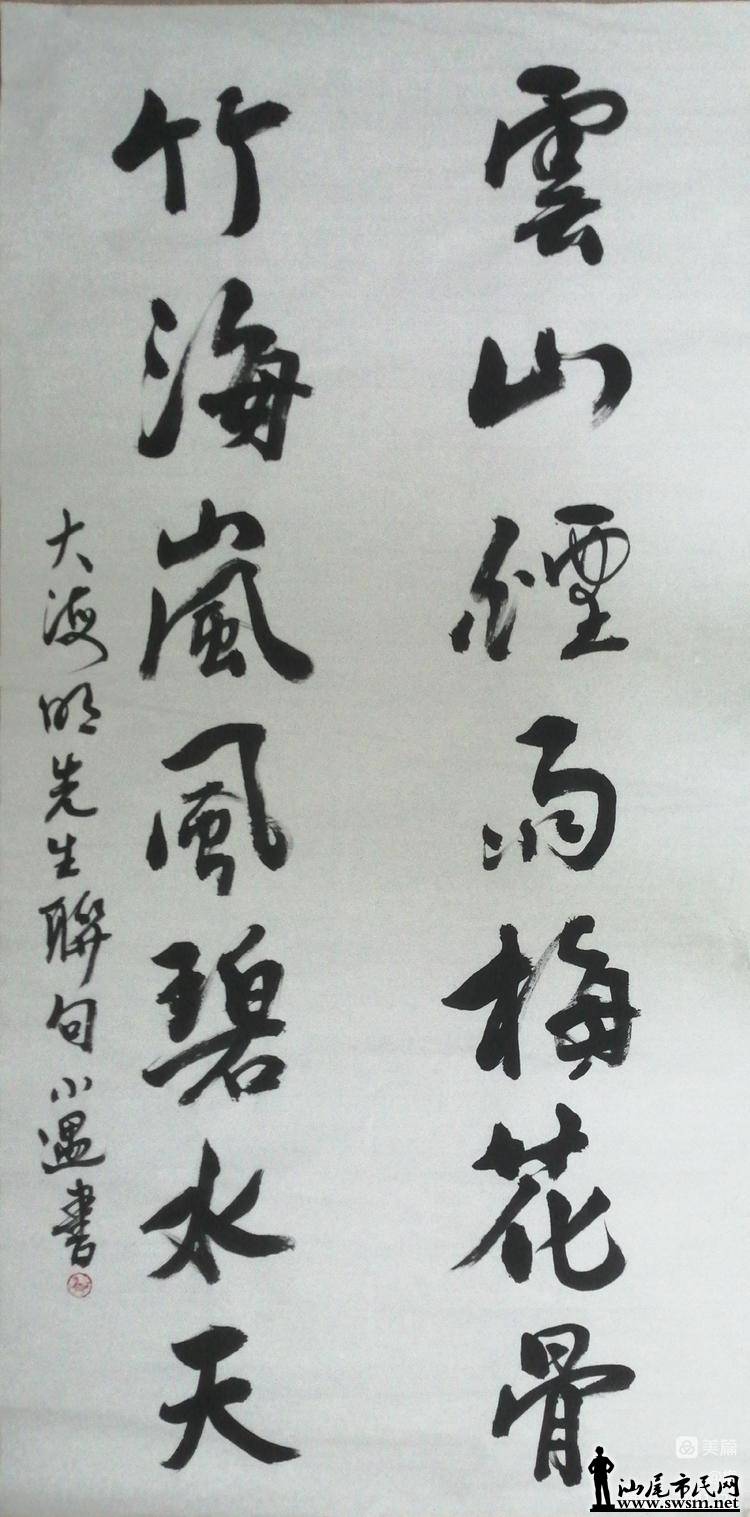 雲山煙雨梅花骨
竹海嵐風碧水天
大海明先生聯句小遇書
美篇
汕尾市民网
www.swsm.net